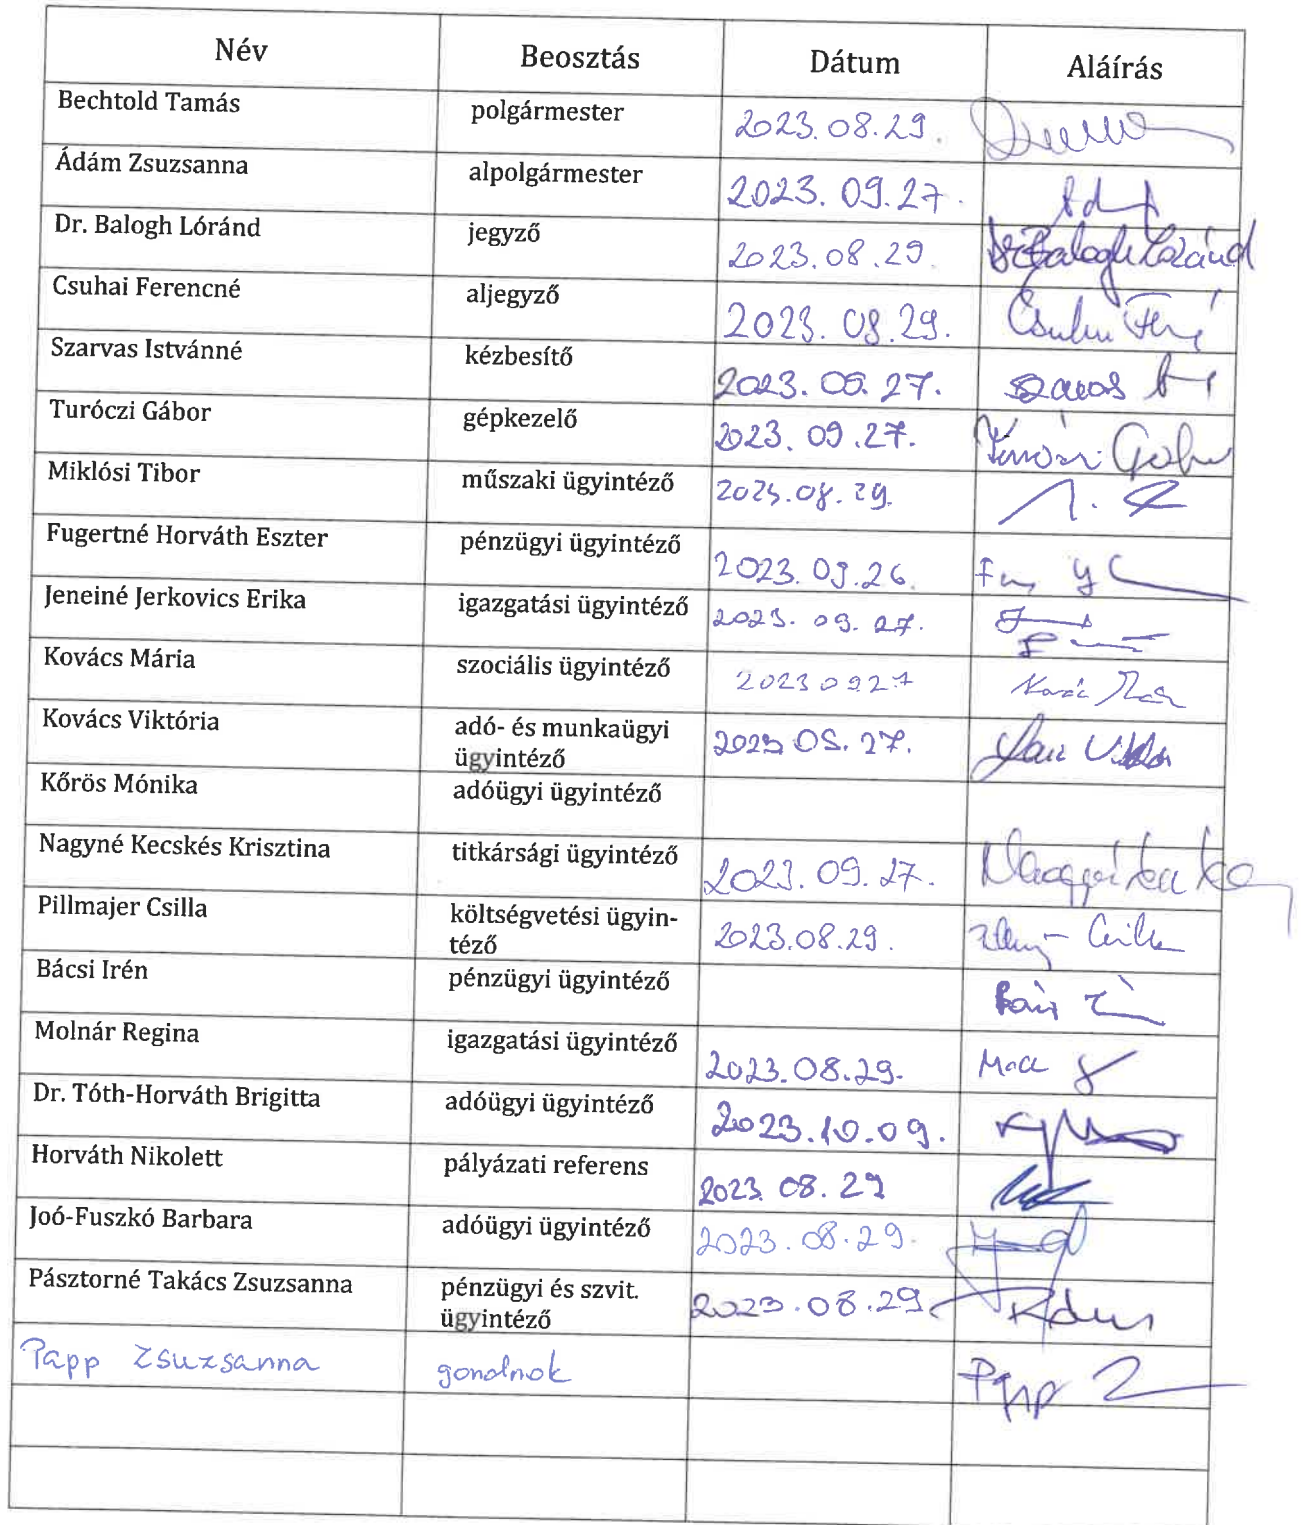 Név Beosztás Dátum Aláírás
Bechtold Tamás polgármester 2023.08.29.
Ádám Zsuzsanna alpolgármester 2023.09.27.
Dr. Balogh Lóránd jegyző 2023.08.29. Dr Balogh Lóránd
Csuhai Ferencné aljegyző 2023.08.29.
Szarvas Istvánné kézbesítő 2023.09.27.
Turóczi Gábor gépkezelő 2023.09.27.
Miklósi Tibor műszaki ügyintéző 2023.08.29.
Fugertné Horváth Eszter pénzügyi ügyintéző 2023.09.26.
Jeneiné Jerkovics Erika igazgatási ügyintéző 2023.09.27.
Kovács Mária szociális ügyintéző 2023 09 27
Kovács Viktória adó- és munkaügyi 2023 09. 27.
ügyintéző
Kőrös Mónika adóügyi ügyintéző
Nagyné Kecskés Krisztina titkársági ügyintéző 2023.09.27.
Pillmajer Csilla költségvetési ügyin- 2023.08.29.
téző
Bácsi Irén pénzügyi ügyintéző
Molnár Regina igazgatási ügyintéző 2023.08.29.
Dr. Tóth-Horváth Brigitta adóügyi ügyintéző 2023.10.09.
Horváth Nikolett pályázati referens 2023 08.29
Joó-Fuszkó Barbara adóügyi ügyintéző 2023.08.29.
Pásztorné Takács Zsuzsanna pénzügyi és szvit. 2023.08.29.
ügyintéző
Papp Zsuzsanna gondnok Papp Z